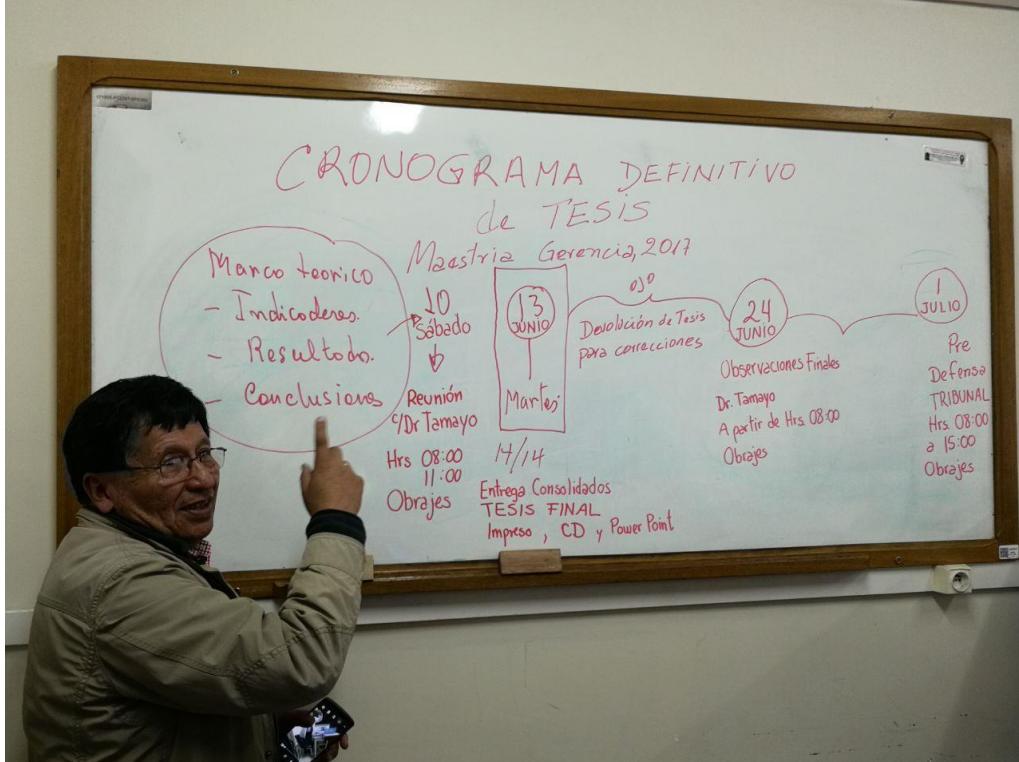 CRONOGRAMA DEFINITIVO
de TESIS
Maestria Gerencia, 2017
Marco teorico
- Indicadores.
- Resultados.
- Conclusiones
10
Sábado
Reunión
c/Dr Tamayo
Hrs 08:00
11:00
Obrajes
13
JUNIO
Martes
14/14
Entrega Consolidados
TESIS FINAL
Impreso, CD y Power Point
Devolución de Tesis
para correcciones
24
JUNIO
Observaciones Finales
Dr. Tamayo
A partir de Hrs. 08:00
Obrajes
1
JULIO
Pre
Defensa
TRIBUNAL
Hrs. 08:00
a 15:00
Obrajes